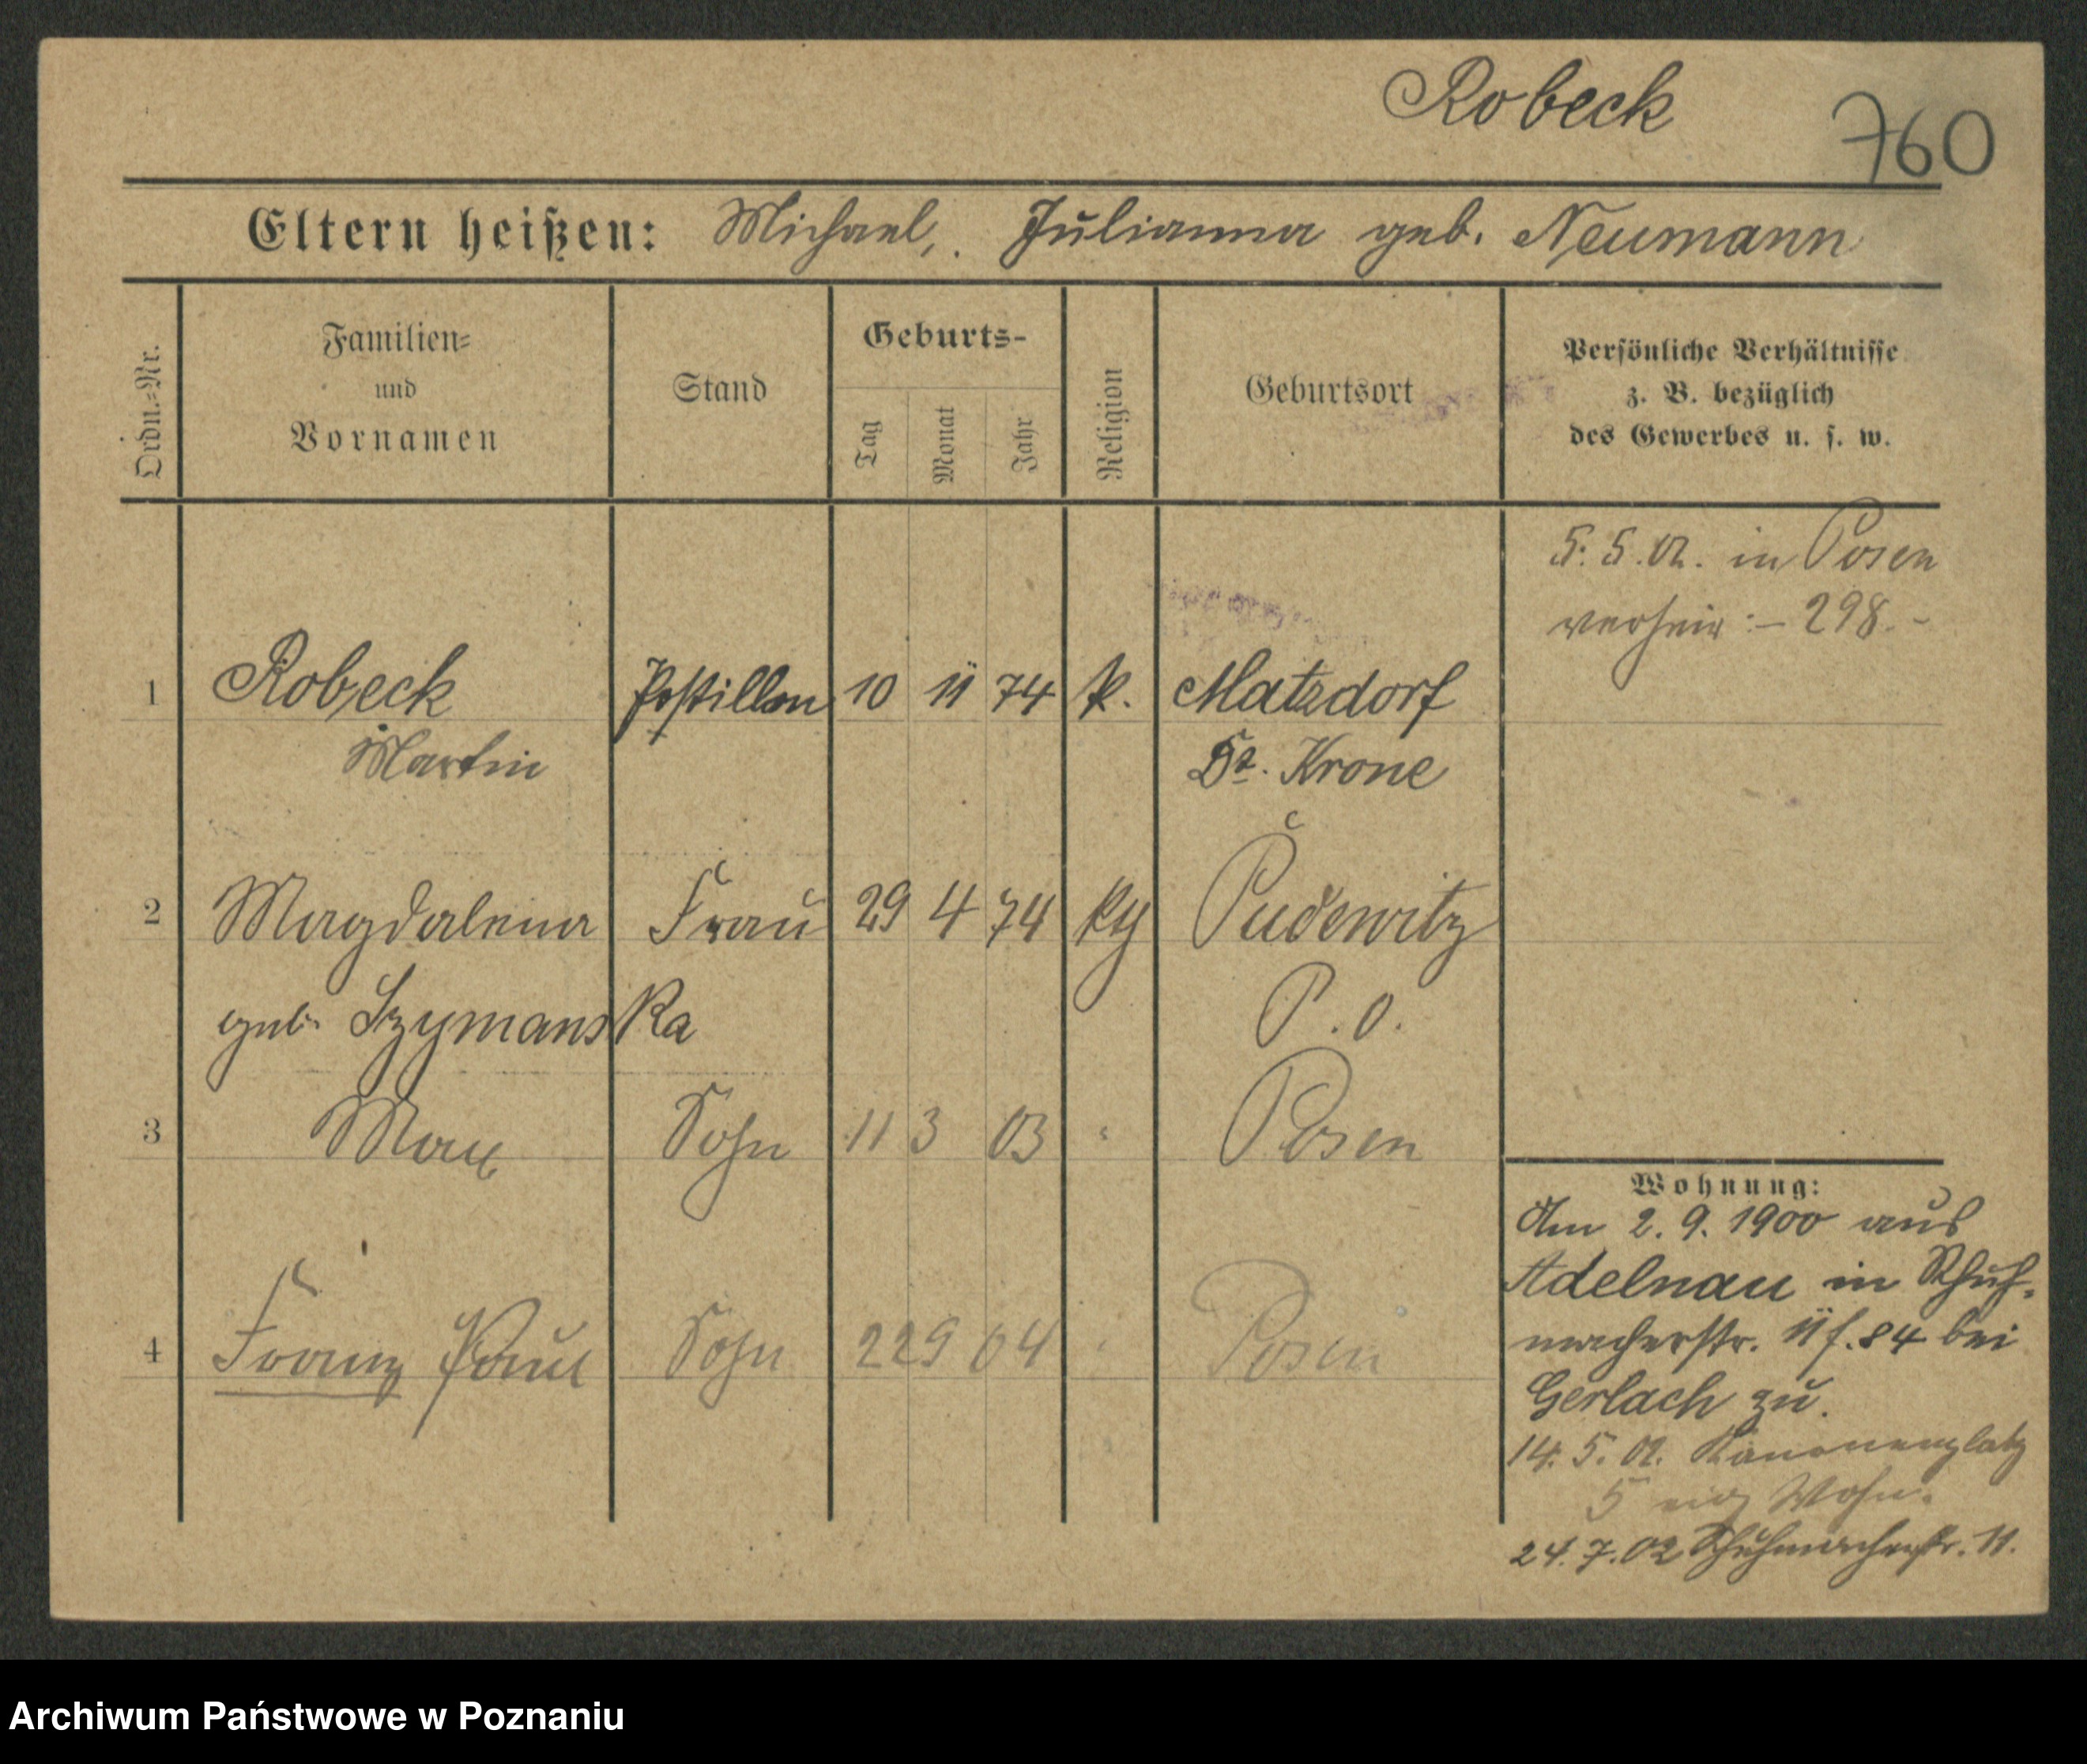 Robeck
760
Eltern heißen: Michael, Julianna geb. Neumann
Ordn.-Nr.
Familien-
und
Vornamen
Stand
Geburts-
Tag
Monat
Jahr
Religion
Geburtsort
Persönliche Verhältnisse
z. B. bezüglich
des Gewerbes u. s. w.
5. 5. 02. in Posen
verheir: – 298. -
1 Robeck Postillon 10 11 74 k. Matzdorf
Martin Dt. Krone
2 Magdalena Frau 29 4 74 Pudewitz
geb. Szymanska P. O.
3 Max Sohn 11 3 03 " Posen
4 Franz Paul Sohn 22 9 04 " Posen
Wohnung:
Am 2. 9. 1900 aus
Adelnau in Schuh-
macherstr. 11 bei
Gerlach zu.
14. 5. 02. Kanonenplatz
5 Wohn.
24. 7. 02 Schuhmacherstr. 11.
Archiwum Państwowe w Poznaniu